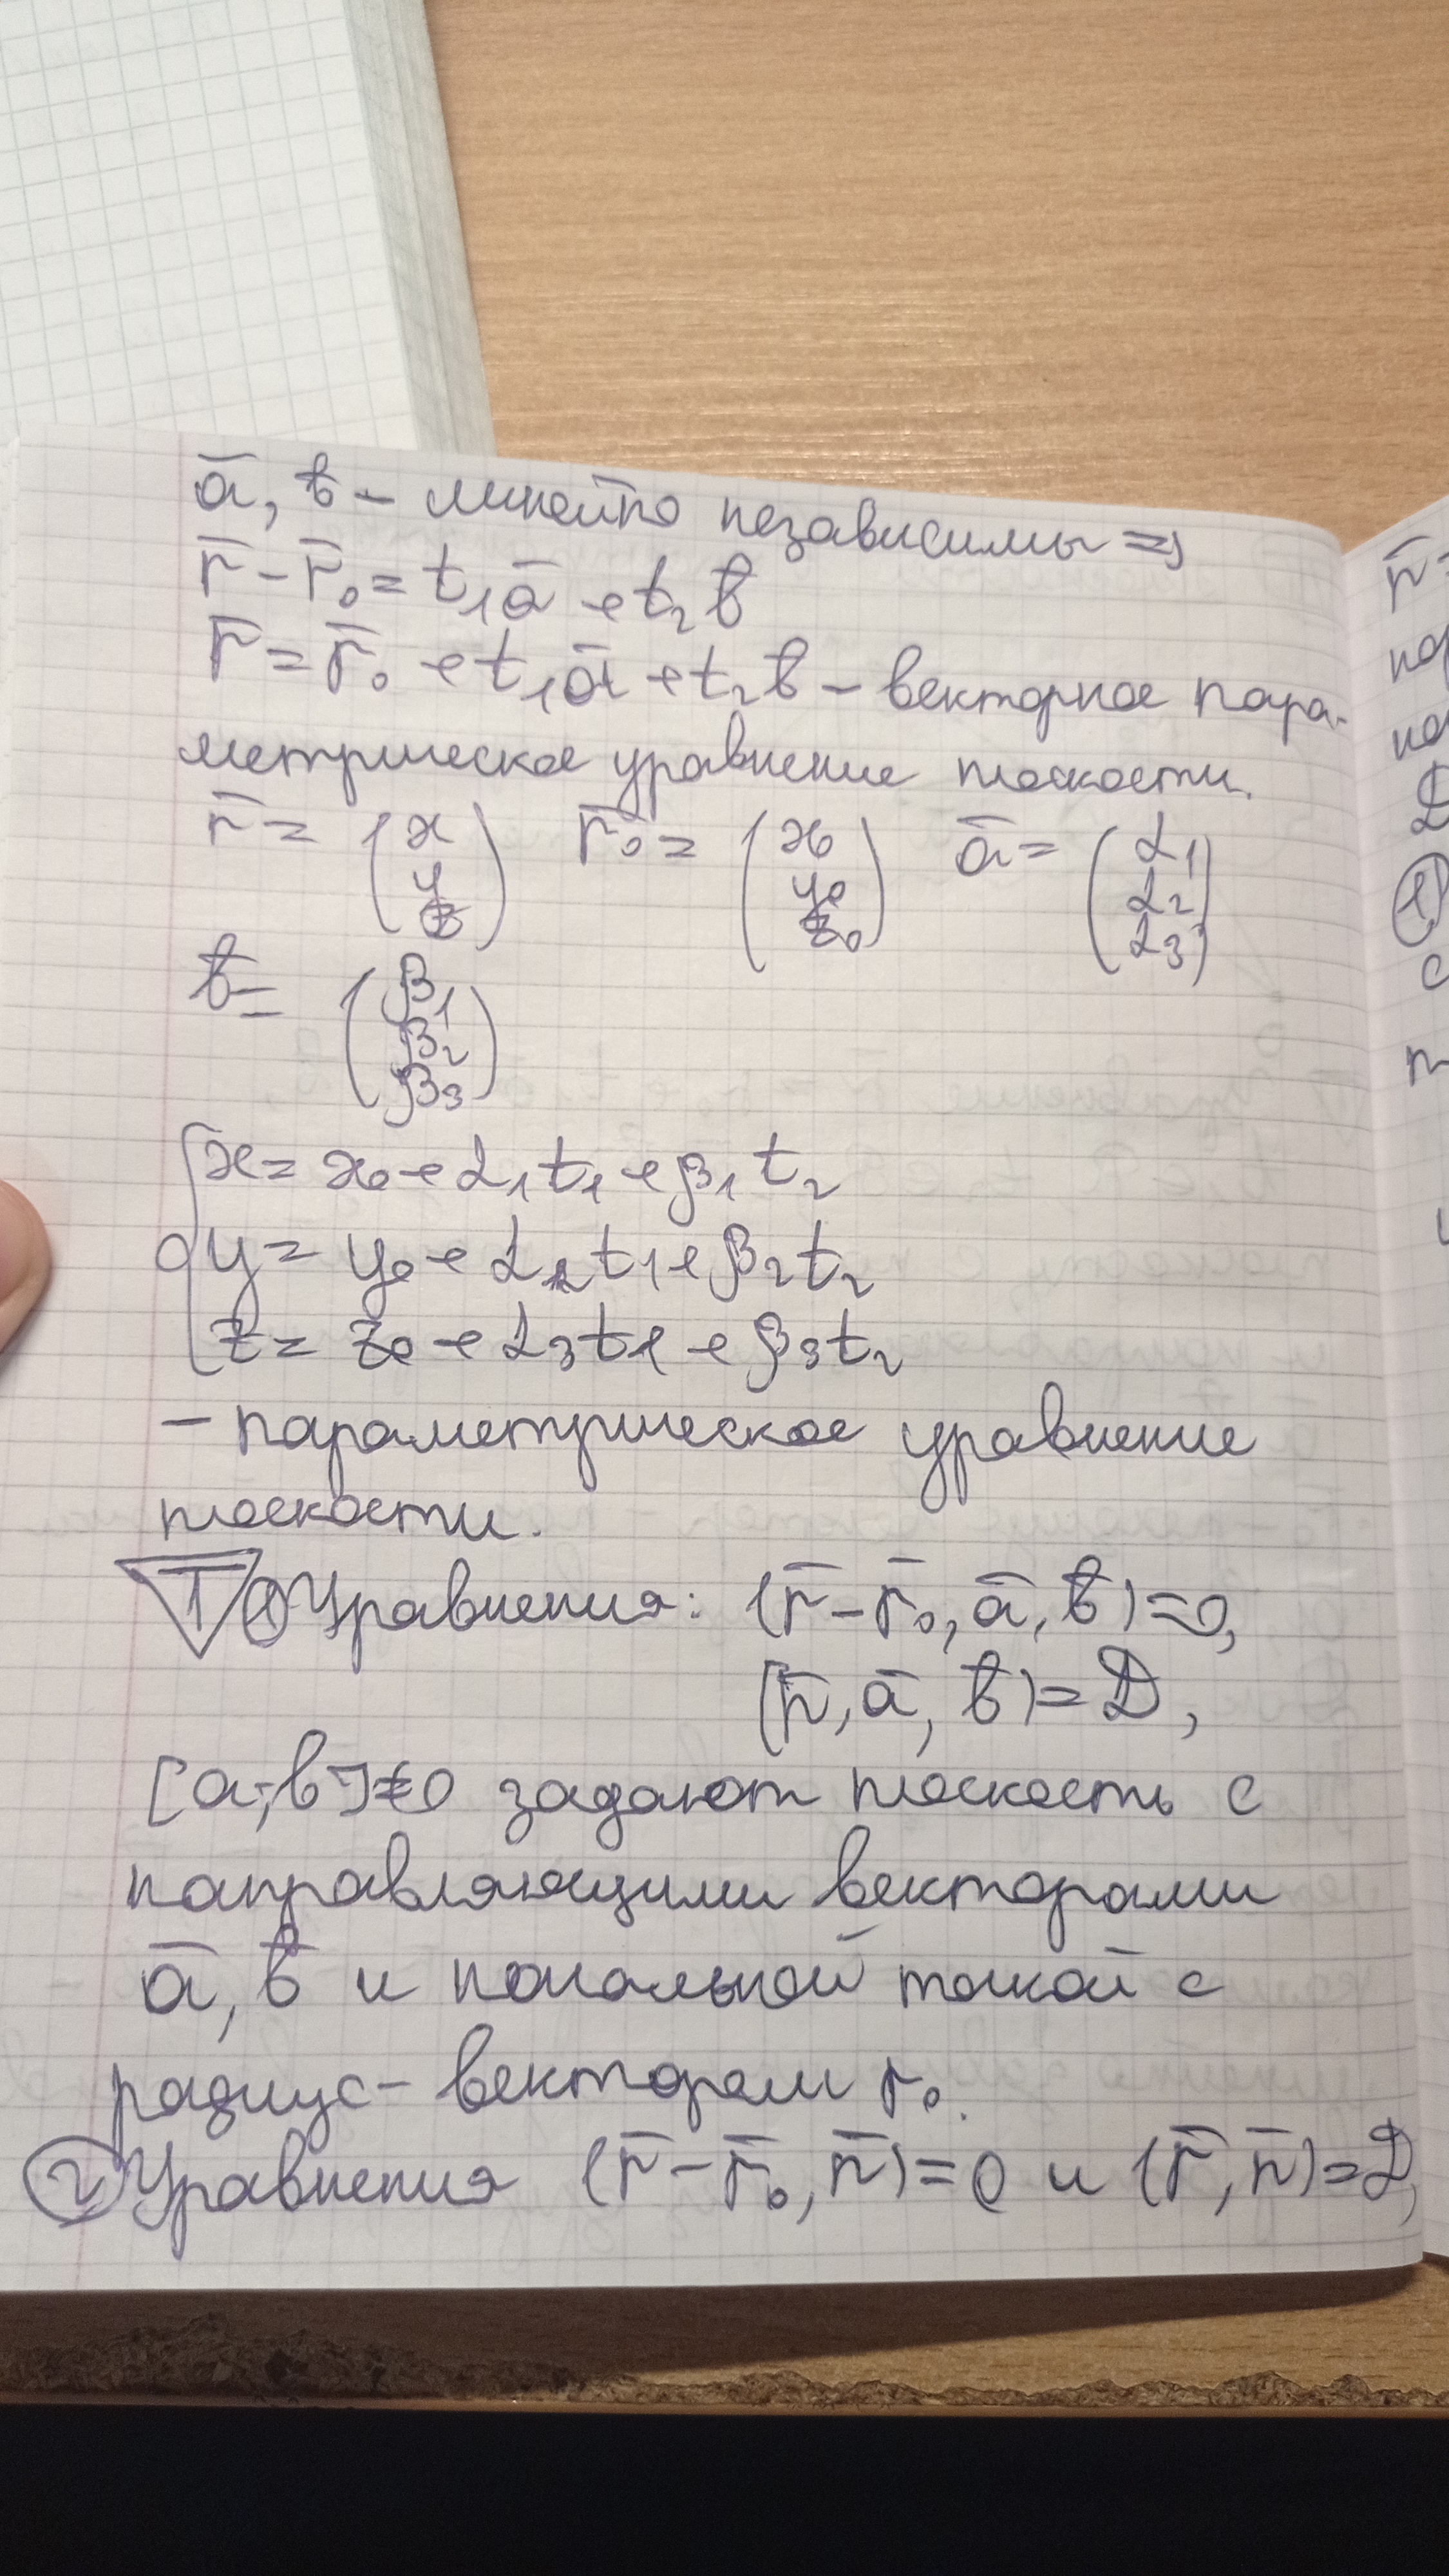 ā, b̄ - линейно независимы ⇒
r̄ - r̄₀ = t₁ā + t₂b̄
r̄ = r̄₀ + t₁ā + t₂b̄ - векторное пара-
метрическое уравнение плоскости.
r̄ = (x y z) r̄₀ = (x₀ y₀ z₀) ā = (α₁ α₂ α₃)
b̄ = (β₁ β₂ β₃)
{ x = x₀ + α₁t₁ + β₁t₂
y = y₀ + α₂t₁ + β₂t₂
z = z₀ + α₃t₁ + β₃t₂
- параметрическое уравнение
плоскости.
T ① Уравнения: (r̄ - r̄₀, ā, b̄) = 0,
(r̄, ā, b̄) = D,
[a; b] ≠ 0 задают плоскость с
направляющими векторами
ā, b̄ и начальной точкой с
радиус-вектором r₀.
② Уравнения (r̄ - r̄₀, n̄) = 0 и (r̄, n̄) = D,